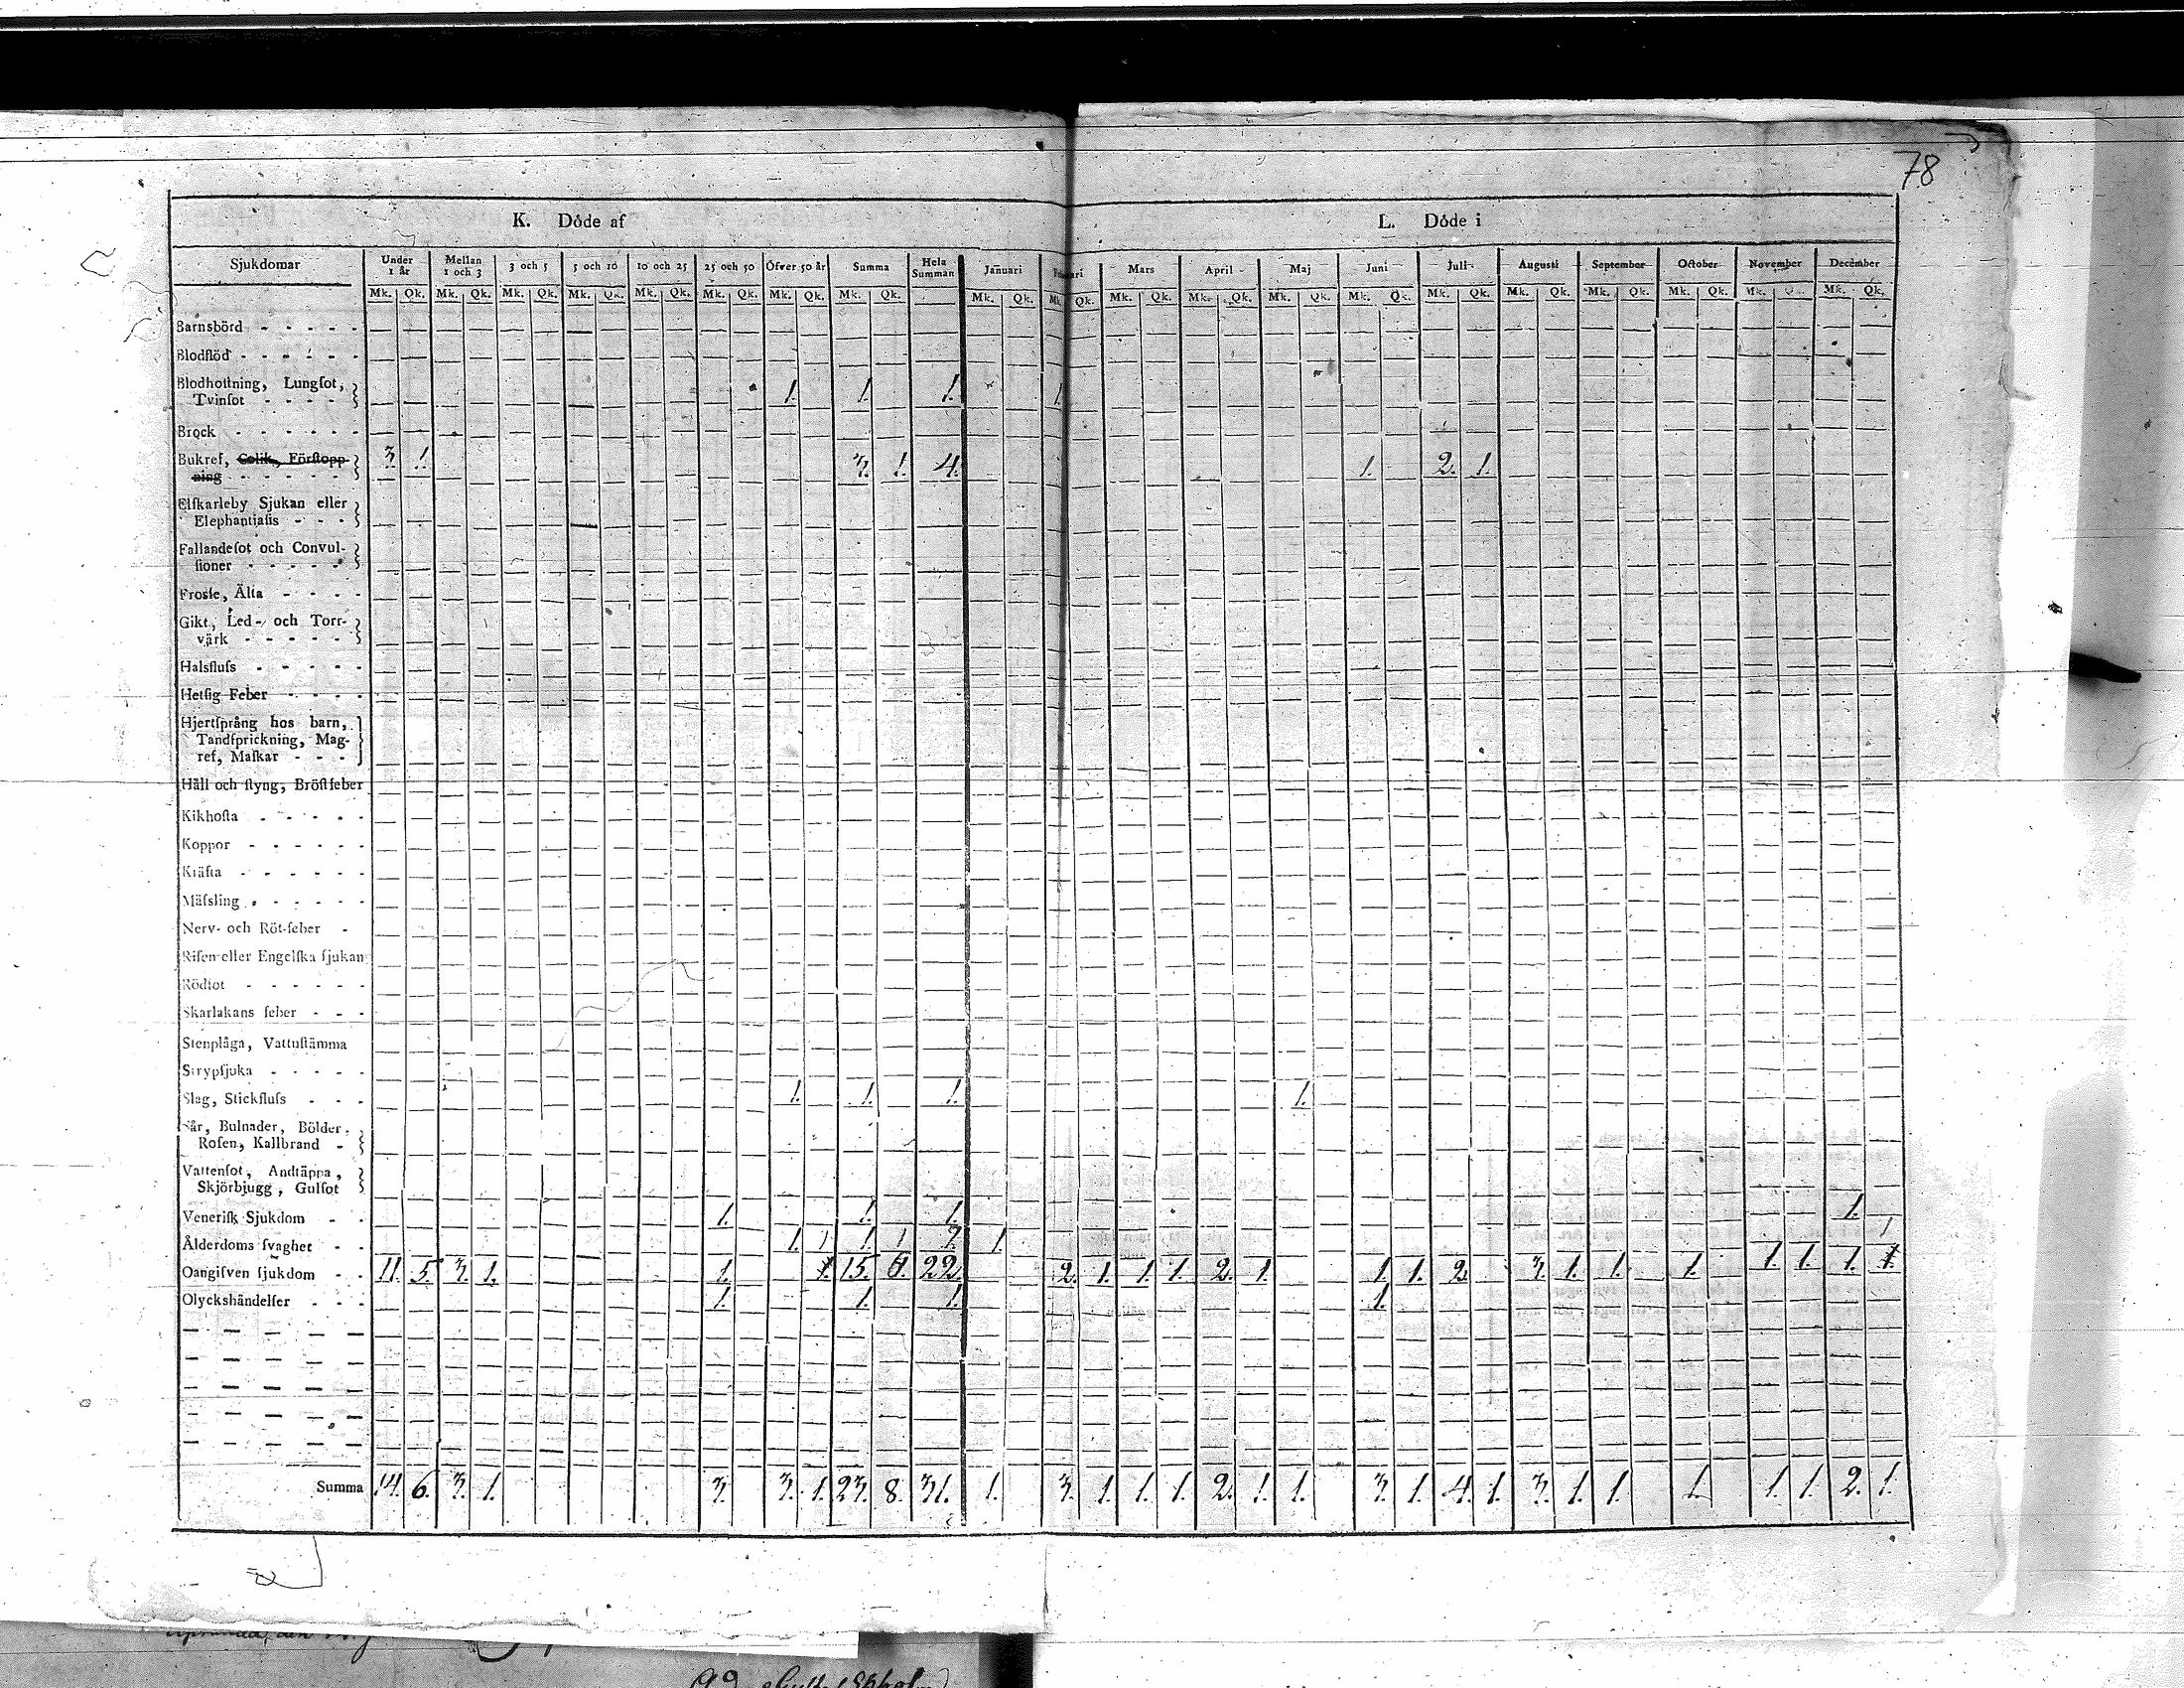 78
K. Döde af L. Döde i
Sjukdomar Under 1 år Mellan 1 och 3 3 och 5 5 och 10 10 och 25 25 och 50 Öfver 50 år Summa Hela Summan Januari Mars April Maj Juni Juli Augusti September October November December
Mk. Qk. Mk. Qk. Mk. Qk. Mk. Qk. Mk. Qk. Mk. Qk. Mk. Qk. Mk. Qk. Mk. Qk. Mk. Qk. Mk. Qk. Mk. Qk. Mk. Qk. Mk. Qk. Mk. Qk. Mk. Qk. Mk. Qk. Mk. Qk. Mk. Mk. Qk.
Barnsbörd - - - - -
Blodflöd - - - - - -
Blodhostning, Lungſot,
Tvinſot - - - - 1. 1. 1. 1.
Bråck - - - - - -
Bukref, Colik, Förſtopp-
ning - - - - - - 3. 1. 3. 1. 4. 1. 2. 1.
Elſkarleby Sjukan eller
Elephantiaſis - - -
Fallandeſot och Convul-
ſioner - - - - -
Froſſe, Älta - - - -
Gikt, Led- och Torr-
värk - - - - -
Halsfluſs - - - - -
Hetſig Feber - - - -
Hjertſprång hos barn,
Tandſprickning, Mag-
ref, Maſkar - - -
Håll och ſtyng, Bröſtfeber
Kikhoſta - - - - -
Koppor - - - - - -
Kräfta - - - - - -
Mäſsling - - - - - -
Nerv- och Röt-feber -
Riſen eller Engelſka ſjukan
Rödſot - - - - - -
Skarlakans feber - - -
Stenplåga, Vattuſtämma
Strypſjuka - - - - -
Slag, Stickfluſs - - - 1. 1. 1. 1.
Sår, Bulnader, Bölder,
Roſen, Kallbrand -
Vattenſot, Andtäppa,
Skjörbjugg, Gulſot
Veneriſk Sjukdom - - 1. 1. 1. 1.
Ålderdoms ſvaghet - - 1. 1 1. 1 2. 1. 1
Oangifven ſjukdom - - 11. 5. 3. 1. 1. 1. 15. 6. 22. 2. 1. 1. 1. 2. 1. 1. 1. 2. 3. 1. 1. 1. 1. 1. 1. 1.
Olyckshändelſer - - - 1. 1. 1. 1.
Summa 14. 6. 3. 1. 3. 3. 1. 23. 8. 31. 1. 3. 1. 1. 1. 2. 1. 1. 3. 1. 4. 1. 3. 1. 1. 1. 1. 1. 2. 1.